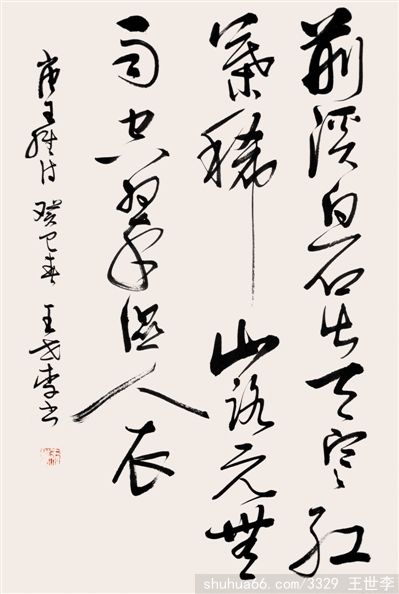 荆溪白石出天寒紅
葉稀山路元無
雨空翠濕人衣
唐王維诗 癸巳春 王世李书
shuhua66.com/3329 王世李